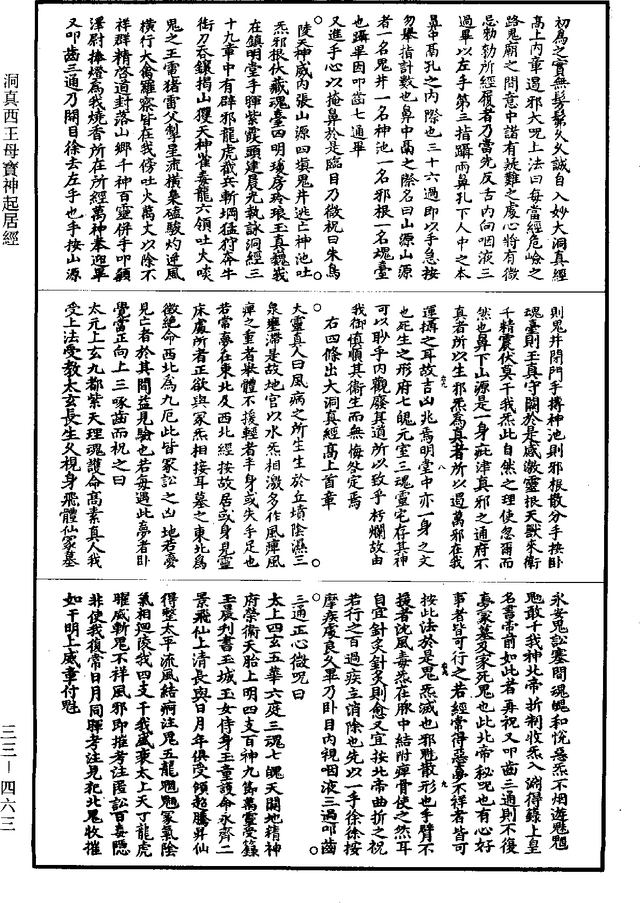 初為之實無髣髴久久誠自入妙大洞真經
高上內章遏邪大呪上法曰每當經危嶮之
路鬼廟之間意中諸有疑難之處心將有微
忌勑勒所經履者乃當先反舌內向咽液三
過畢以左手第二指第三指躡兩鼻孔下人中之本
鼻中鬲孔之內際也三十六過即以手急按
勿舉指計數也鼻中鬲之際名曰山源山源
者一名鬼井一名神池一名邪根一名魂臺
也躡畢因叩齒七通畢
又進手心以掩鼻於是臨目乃微祝曰朱鳥
陵天神威內張山源四填鬼井逃亡神池吐
炁邪根伏藏魂臺四明瓊房玲琅玉真巍峩
在鎮明堂手暉紫霞頭建晨光執詠洞經三
十九章中有辟邪龍虎截兵斬堈猛狩奔牛
銜刀吞鑲揭山攫天神雀毒龍六領吐火啖
鬼之王電猪雷父掣星流橫梟磕駮灼逆風
橫行天禽羅察皆在我傍吐火萬丈以除不
祥群精啓道封落山鄉千神百靈併手叩顙
澤尉捧燈為我燒香所在所經萬神奉迎畢
又叩齒三通乃開目徐去左手也手按山源
則鬼井閉門手摶神池則邪根散分手按卧
魂臺則玉真守關於是感激靈根天獸來衛
千精震伏莫干我炁此自然之理使忽爾而
然也鼻下山源是一身武津真邪之通府不
真者所以生邪炁為真者所以遏萬邪在我
運攝之耳故吉凶兆焉明堂中亦一身之文
也死生之形府七魄元室三魂靈宅存其神
可以眇乎內觀廢其道所以致乎朽爛故由
我御慎順其衛生而無悔咎定焉
右四條出大洞真經高上首章
大靈真人曰風病之所生生於丘墳陰濕三
泉壅滯是故地官以水炁相激多作風痺風
痺之重者舉體不援輕者半身或失手足也
若常夢在東北及西北經接故居或身見靈
床處所者正欲與冢炁相接耳墓之東北為
徵絕命西北為九厄此皆冢訟之凶地若憂
見亡者於其間益見驗也若每遇此夢者卧
覺當正向上三啄齒而祝之曰
太元上玄九都紫天理魂護命高素真人我
受上法受教太玄長生久視身飛體仙冢墓
永安鬼訟塞閉魂魄和悅惡炁不烟遊魅魍
魎敢干我神北帝折制收炁入淵得籙上皇
名書帝前如此者再祝又叩齒三通則不復
夢冢墓及家死鬼也此北帝祕呪也有心好
事者皆可行之若經常得惡夢不祥者皆可
按此法於是鬼炁滅也邪魅散形也手臂不
援者沈風毒炁在脉中結附痺骨使之然耳
自宜針灸針灸則愈又宜按北帝曲折之祝
若行之百過疾亦消除也先以一手徐徐按
摩疾處良久畢乃卧目內視咽液三過叩齒
三通正心微呪曰
太上四玄五華六庭三魂七魄天開地精神
府榮衛天胎上明四支百神九節萬靈受籙
玉晨刋書玉城玉女侍身玉童護命永齊二
景飛仙上清長與日月年俱後傾超騰昇仙
得整太平流風結痾注鬼五龍魍魎冢氣陰
氣相迴陵我四支干我盛衰太上天丁龍虎
曜威斬鬼不祥風邪即摧考注匿訟百毒隱
非使我復常日月同暉考注見犯北鬼收摧
如干明上威章付魁
洞真西王母寶神起居經
三三—四六三